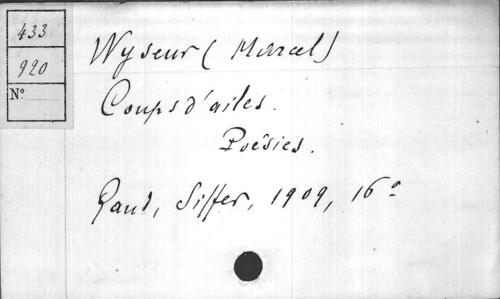 433
920
N°
Wyseur (Marcel)
Coups d'ailes.
Poësies.
Gand, Siffer, 1909, 16°